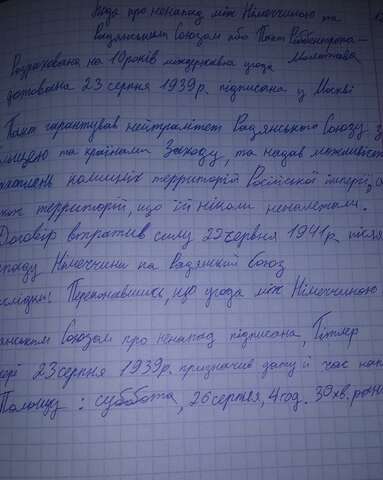 Угода про ненапад між Німеччиною та
Радянським Союзом або Пакт Ріббентропа-
Молотова
Розрахована на 10 років міждержавна угода
датована 23 серпня 1939 р. підписана у Москві
Пакт гарантував нейтралітет Радянського Союзу з
та країнами Заходу, та надав можливість
колишніх территорій Російської імперії, а
територій, що їй ніколи неналежали.
Договір втратив силу 22 червня 1941 р. після
нападу Німеччини на Радянский Союз
Переконавшись, що угода між Німеччиною
Союзом про ненапад підписана, Гітлер
23 серпня 1939 р. призначив дату й час нап
Польщу : суббота, 26 серпня, 4 год. 30 хв. ранку